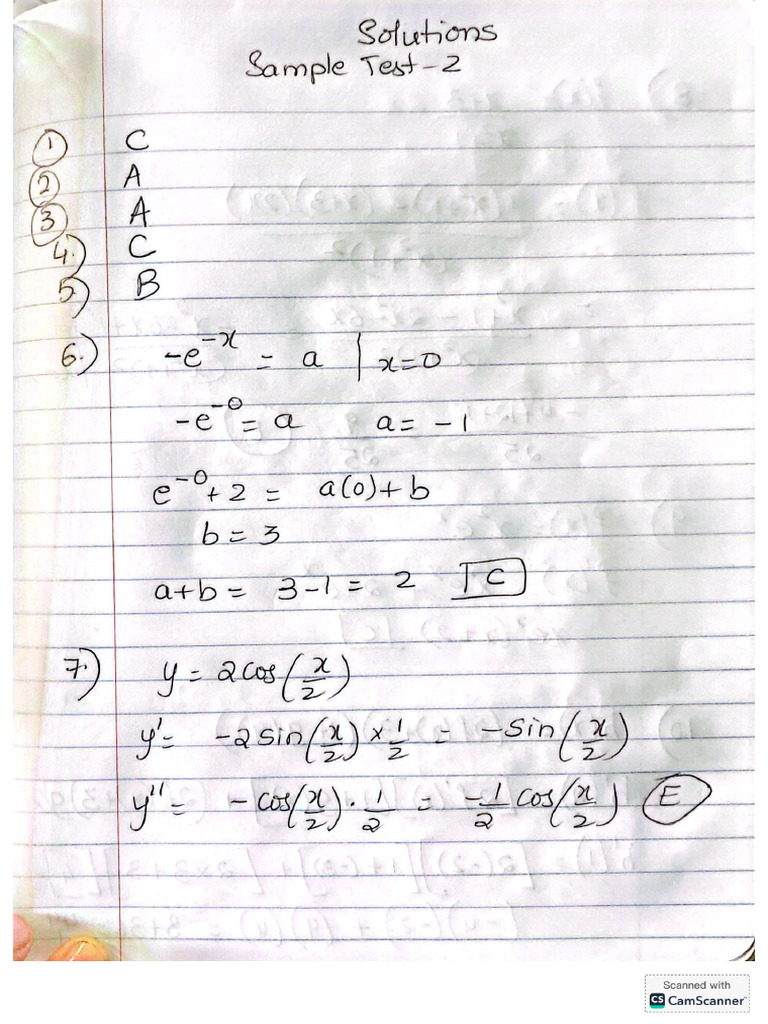 Solutions
Sample Test-2
1 C
2 A
3 A
4.) C
5) B
6.) -e^{-x} = a | x=0
-e^{-0} = a a = -1
e^{-0} + 2 = a(0)+b
b = 3
a+b = 3-1 = 2 C
7.) y = 2cos(x/2)
y' = -2sin(x/2) × 1/2 = -Sin(x/2)
y'' = -cos(x/2) · 1/2 = -1/2 cos(x/2) E
Scanned with
CS CamScanner